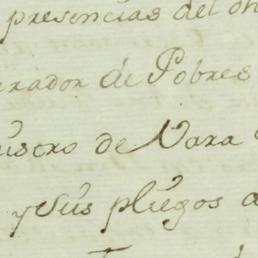 presencias del dh
erador de Pobres
uscro de Vara
y sus pliegos a